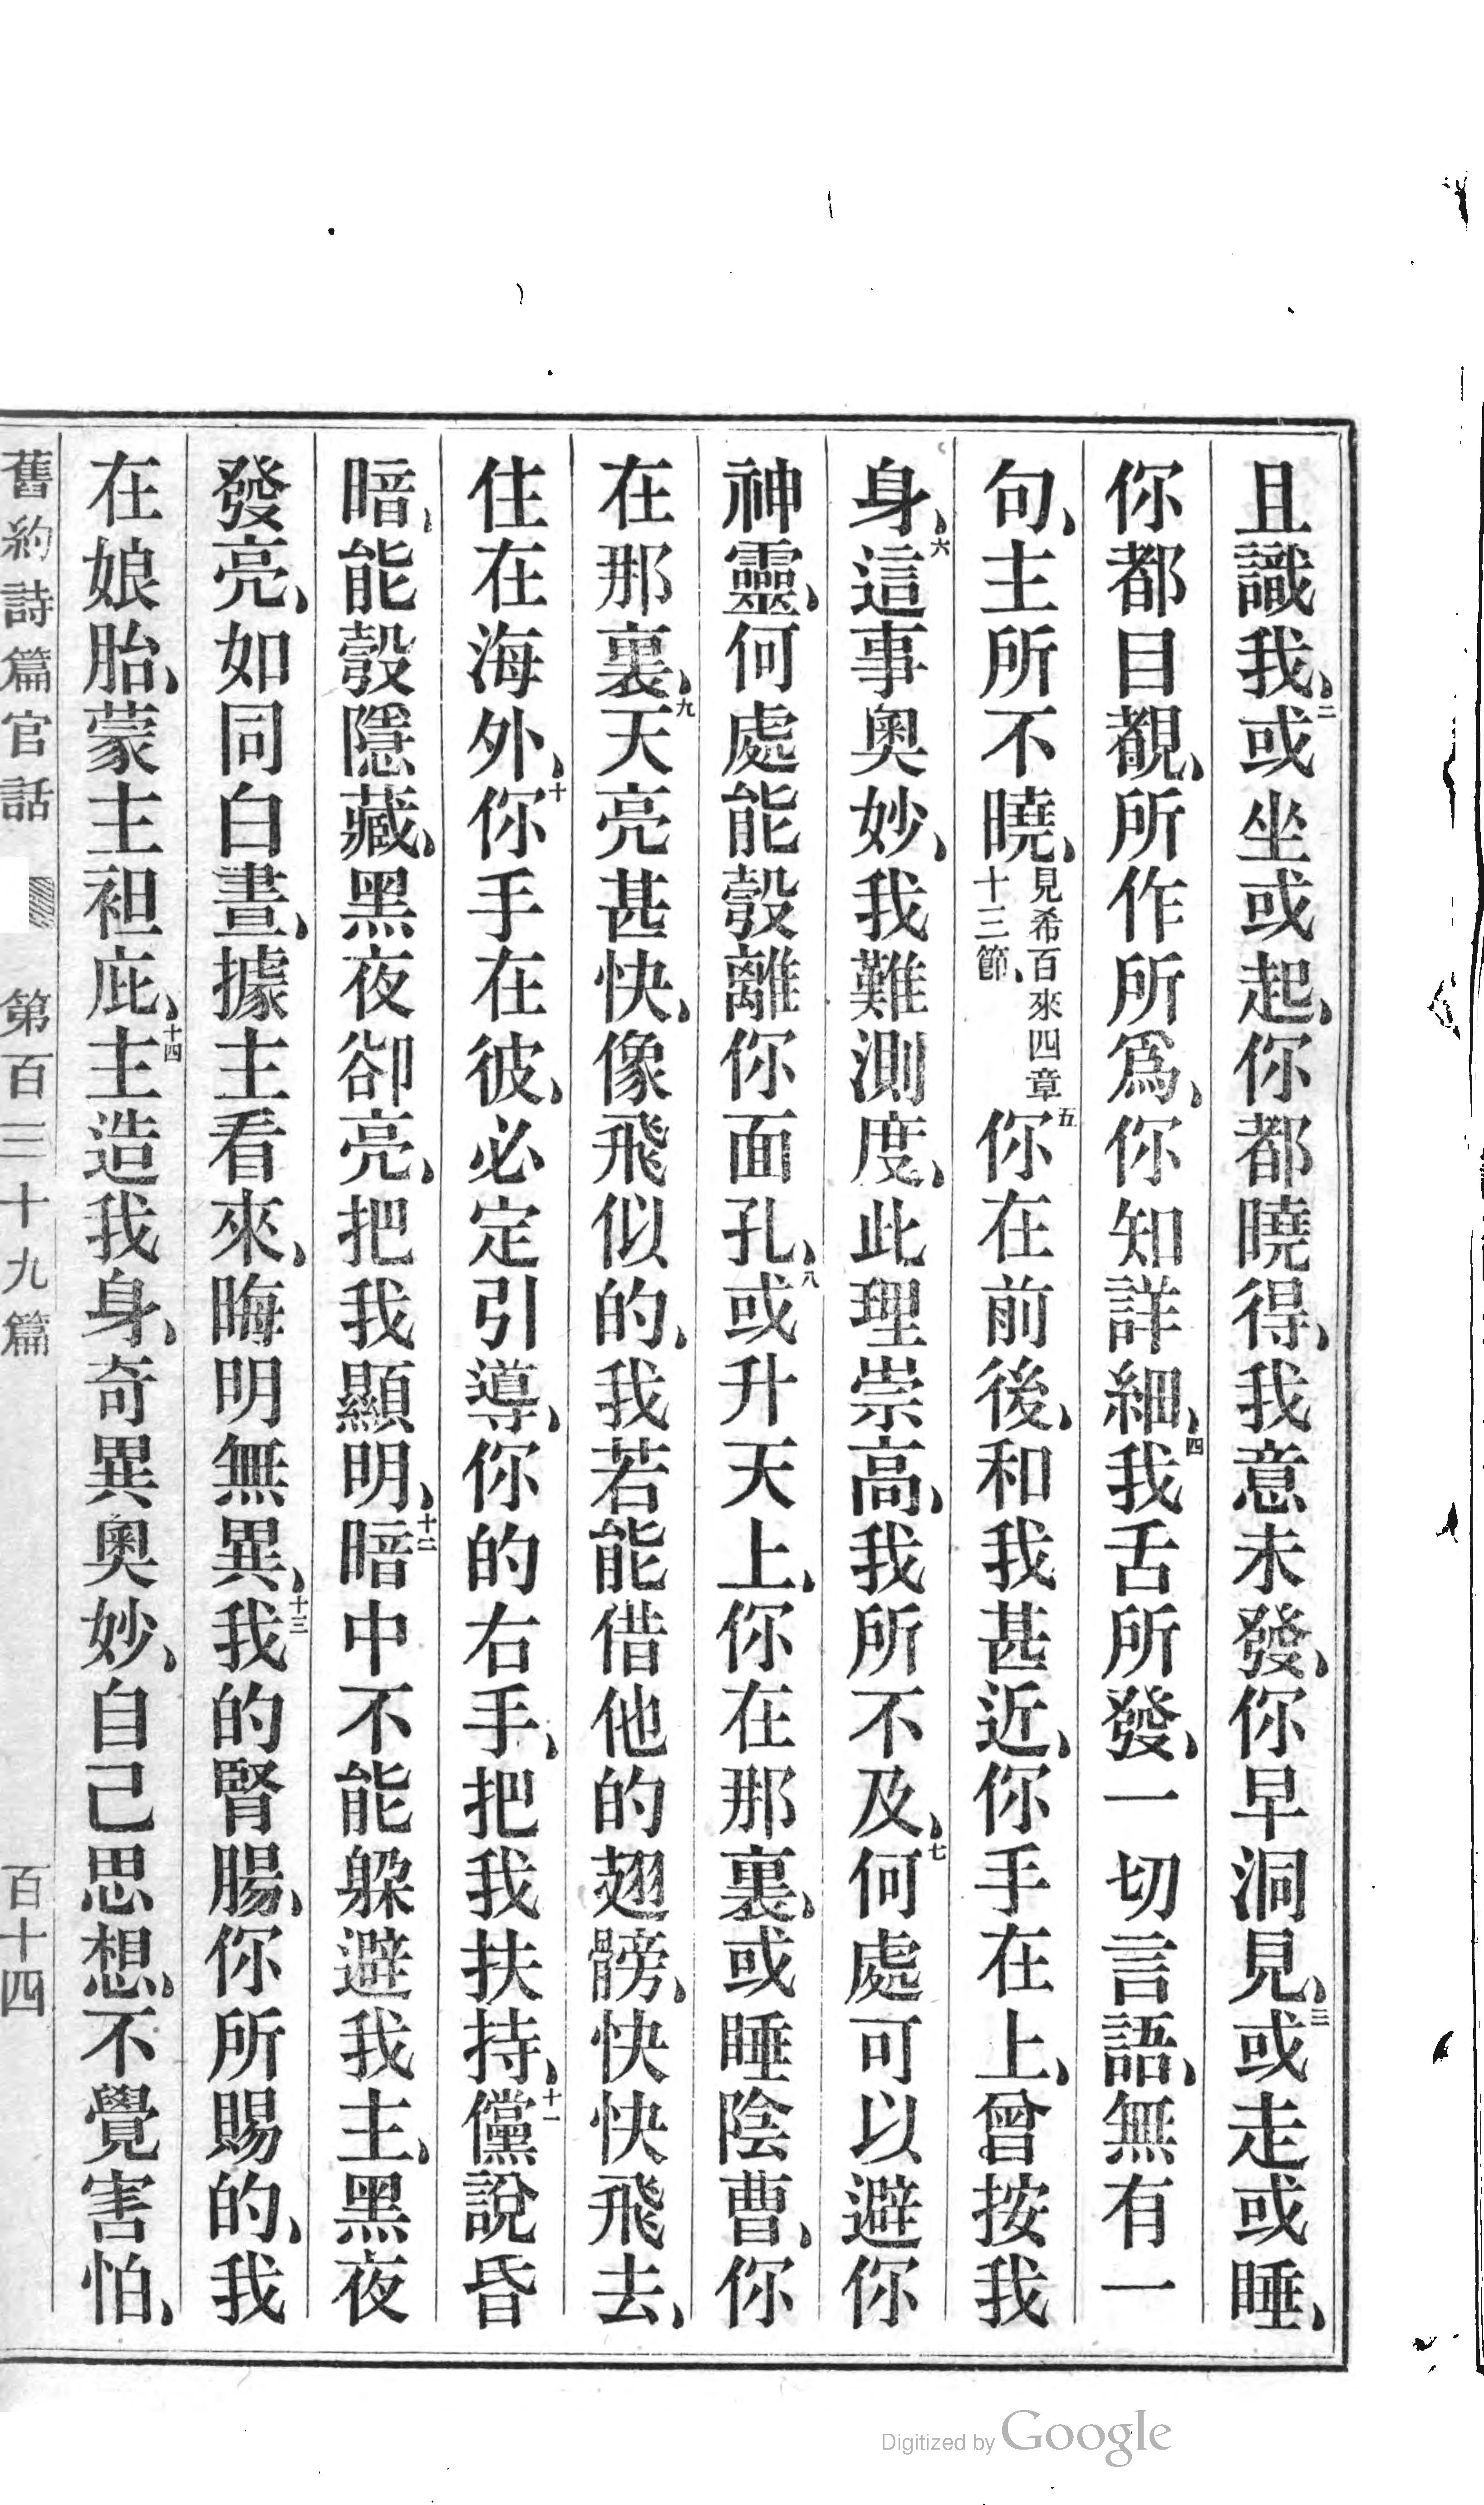 且識我、二或坐或起、你都曉得、我意未發、你早洞見、三或走或睡、
你都目覩、所作所爲、你知詳細、四我舌所發、一切言語、無有一
句、主所不曉、見希百來四章十三節、五你在前後、和我甚近、你手在上、曾按我
身、六這事奥妙、我難測度、此理崇高、我所不及、七何處可以避你
神靈、何處能彀離你面孔、八或升天上、你在那裏、或睡陰曹、你
在那裏、九天亮甚快、像飛似的、我若能借他的翅髈、快快飛去、
住在海外、十你手在彼、必定引導、你的右手、把我扶持、十一儻說昏
暗、能彀隱藏、黑夜卻亮、把我顯明、十二暗中不能躱避我主、黑夜
發亮、如同白晝、據主看來、晦明無異、十三我的腎腸、你所賜的、我
在娘胎、蒙主袒庇、十四主造我身、奇異奥妙、自己思想、不覺害怕、
舊約詩篇官話 第百三十九篇 百十四
Digitized by Google